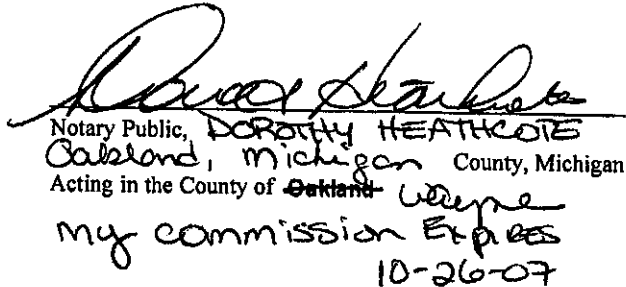 Notary Public, DOROTHY HEATHCOTE
Oakland, Michigan County, Michigan
Acting in the County of Oakland Wayne
My commission Expires
10-26-07